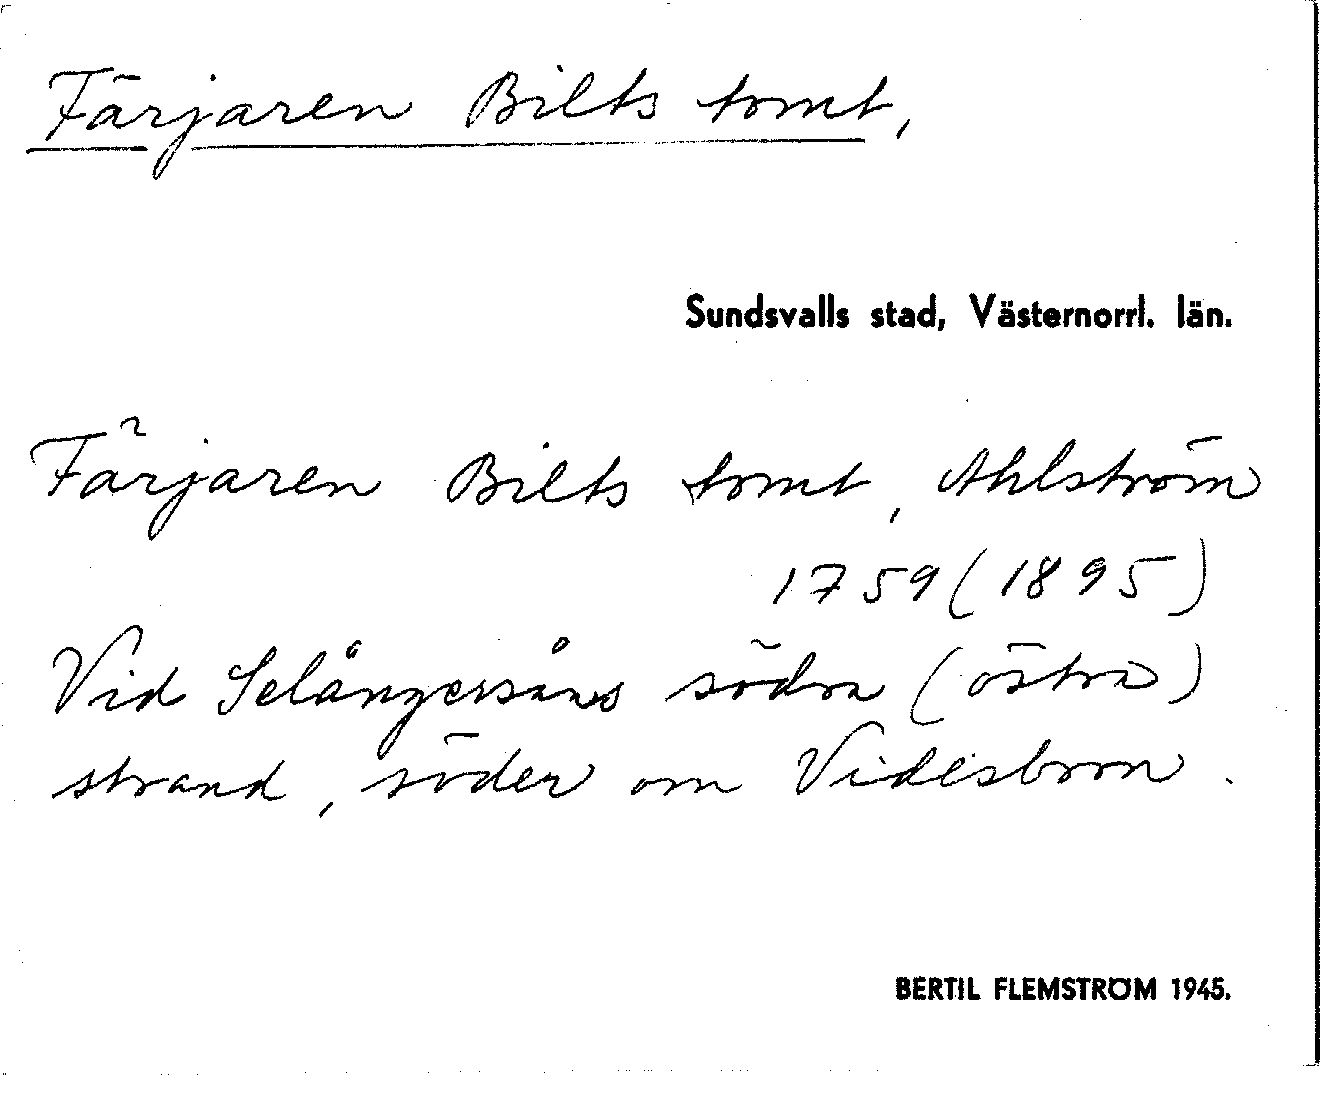 Färjaren Bilts tomt,
Sundsvalls stad, Västernorrl. län.
Färjaren Bilts tomt, Ahlström
1759 (1895)
Vid Selångersåns södra (östra)
strand, söder om Videsbron.
BERTIL FLEMSTRÖM 1945.